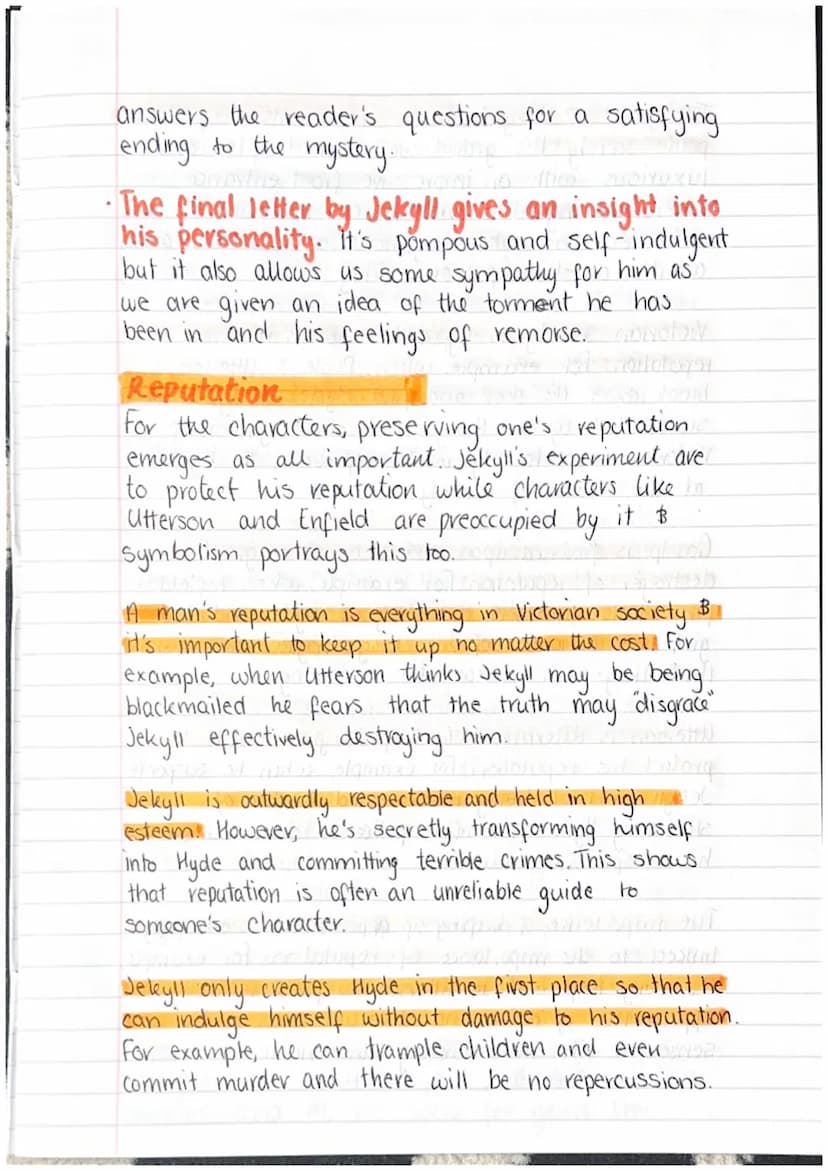 answers the reader's questions for a satisfying
ending to the mystery.
· The final letter by Jekyll gives an insight into
his personality. It's pompous and self-indulgent
but it also allows us some sympathy for him as
we are given an idea of the torment he has
been in and his feelings of remorse.
Reputation
For the characters, preserving one's reputation
emerges as all important. Jekyll's experiment are
to protect his reputation while characters like
Utterson and Enfield are preoccupied by it &
symbolism portrays this too.
A man's reputation is everything in Victorian society &
it's important to keep it up no matter the cost. For
example, when Utterson thinks Jekyll may be being
blackmailed he fears that the truth may "disgrace"
Jekyll effectively destroying him.
Jekyll is outwardly respectable and held in high
esteem. However, he's secretly transforming himself
into Hyde and committing terrible crimes. This shows
that reputation is often an unreliable guide to
someone's character.
Jekyll only creates Hyde in the first place so that he
can indulge himself without damage to his reputation.
For example, he can trample children and even
commit murder and there will be no repercussions.